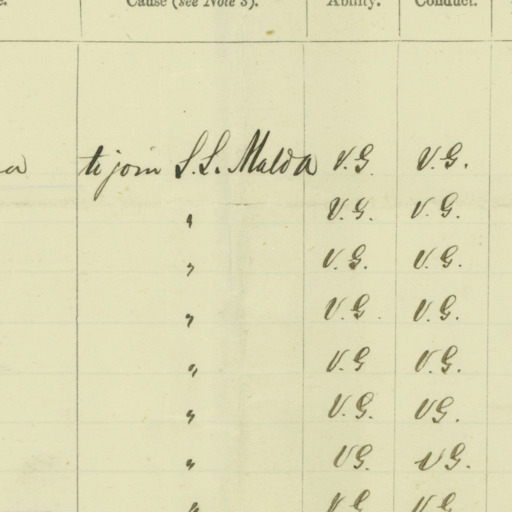 Cause (see Note 3). Ability. Conduct.
to join S.S. Malda V.G. V.G.
" V.G. V.G.
" V.G. V.G.
" V.G. V.G.
" V.G V.G.
" V.G. VG.
" VG. VG.
" VG VG